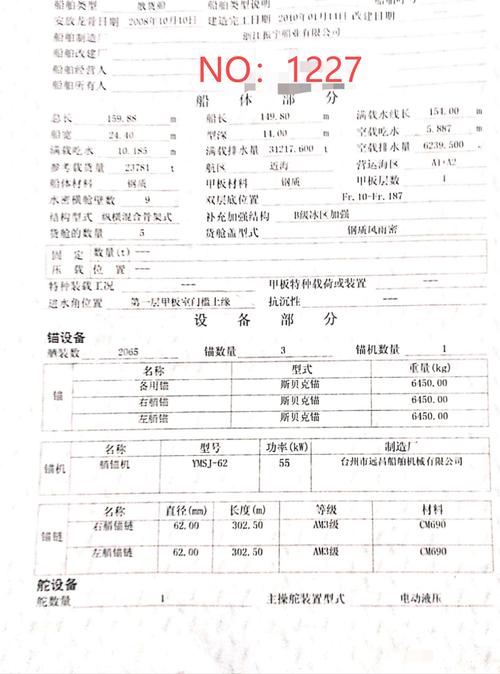 船舶类型 散货船 船舶类型说明
安放龙骨日期 2008年10月10日 建造完工日期 2010年01月14日 改建日期
船舶制造厂 浙江振宇船业有限公司
船舶改建厂
船舶经营人
船舶所有人
NO：1227
船 体 部 分
总长 159.88 m 船长 149.80 m 满载水线长 154.00 m
船宽 24.40 m 型深 14.00 m 空载吃水 5.887 m
满载吃水 10.185 m 满载排水量 31217.600 t 空载排水量 6239.500 t
参考载货量 23781 t 航区 近海 营运海区 A1+A2
船体材料 钢质 甲板材料 钢质 甲板层数 1
水密横舱壁数 9 双层底位置 Fr.10-Fr.187
结构型式 纵横混合骨架式 补充加强结构 B级冰区加强
货舱的数量 5 货舱盖型式 钢质风雨密
固 定 数量(t) ---
压 载 位置 ---
特种装载工况 --- 甲板特种载荷或装置 ---
进水角位置 第一层甲板室门槛上缘 抗沉性 ---
设 备 部 分
锚设备
舾装数 2065 锚数量 3 锚机数量 1
名称 型式 重量(kg)
锚 备用锚 斯贝克锚 6450.00
右艏锚 斯贝克锚 6450.00
左艏锚 斯贝克锚 6450.00
名称 型号 功率(kW) 制造厂
锚机 艏锚机 YMSJ-62 55 台州市远昌船舶机械有限公司
名称 直径(mm) 长度(m) 等级 材料
锚链 右艏锚链 62.00 302.50 AM3级 CM690
左艏锚链 62.00 302.50 AM3级 CM690
舵设备
舵数量 1 主操舵装置型式 电动液压